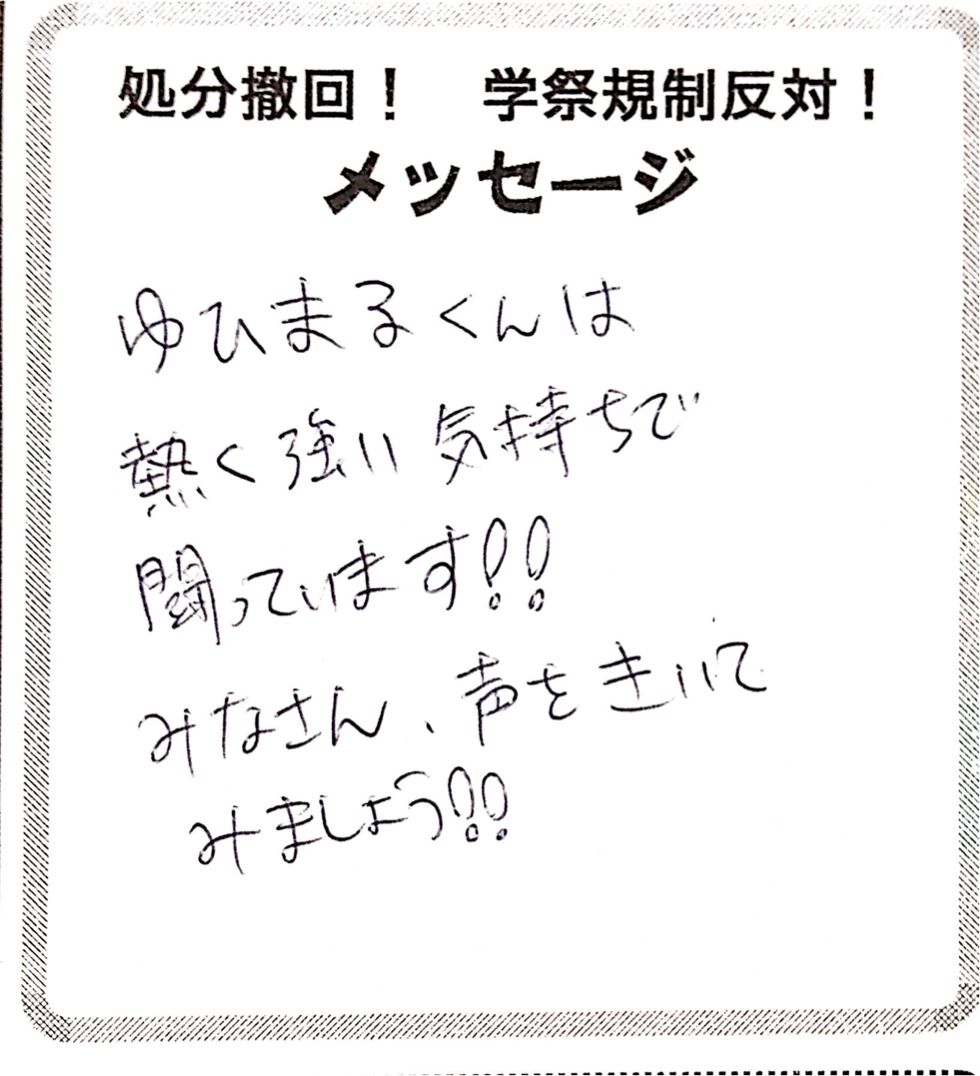 処分撤回！　学祭規制反対！
メッセージ
ゆひまるくんは
熱く強い気持ちで
闘っています!!
みなさん、声をきいて
みましょう!!